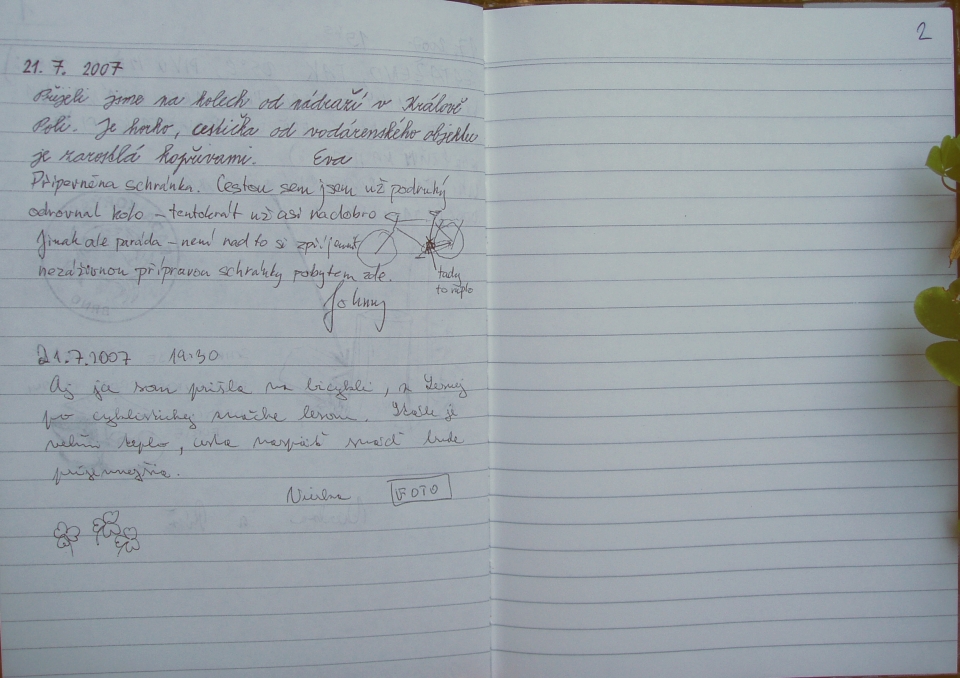 2
21. 7. 2007
Přijeli jsme na kolech od nádraží v Králově
Poli. Je horko, cestička od vodárenského objektu
je zarostlá kopřivami. Eva
Připevněna schránka. Cestou sem jsem už podruhý
odrovnal kolo – tentokrát už asi nadobro
Jinak ale paráda – není nad to si zpříjemnit
nezáživnou přípravou schránky pobytem zde.
tady
to ruplo
Johnny
21.7.2007 19:30
Aj ja som prišla na bicykli, z Lesnej
po cyklistickej značke lesom. Stále je
veľmi teplo, cesta naspäť snáď bude
príjemnejšia.
FOTO